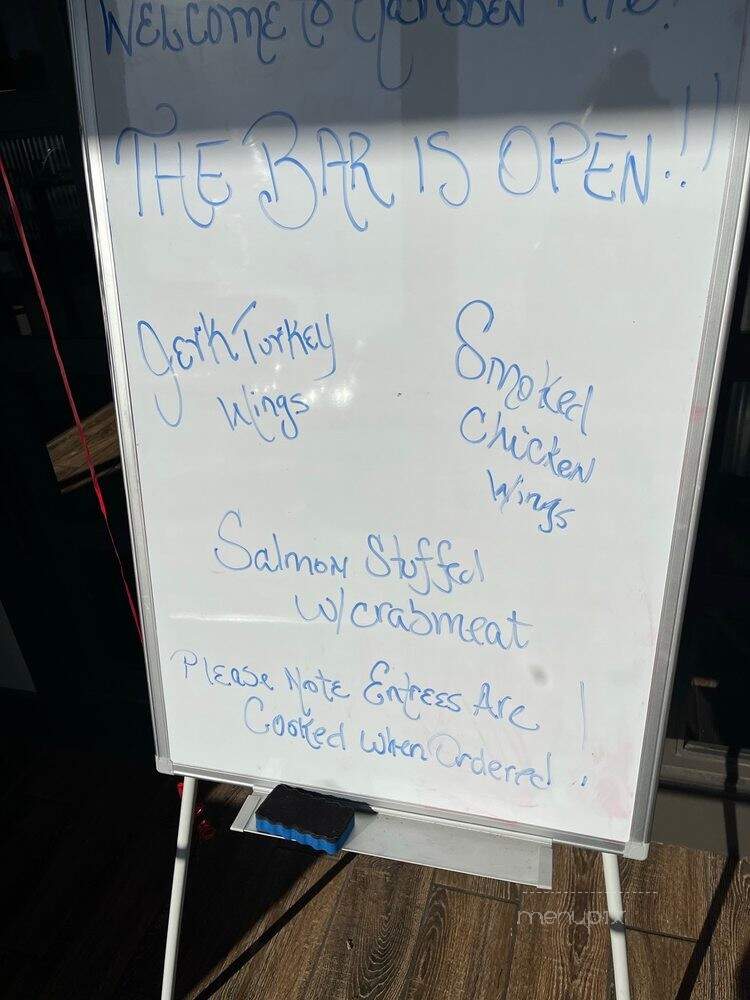 WELCOME to
THE BAR IS OPEN!!
Jerk Turkey
Wings
Smoked
Chicken
Wings
Salmon Stuffed
w/crabmeat
Please Note Entrees Are
Cooked when Ordered!
menupix